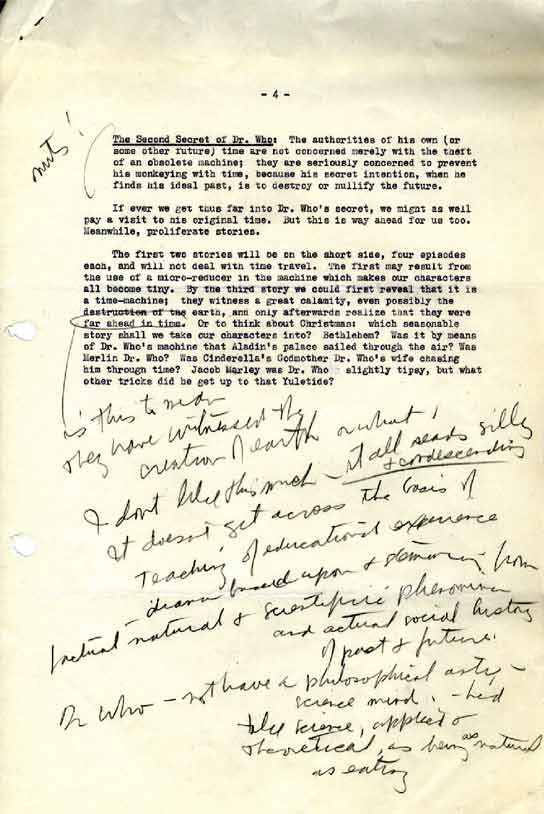 - 4 -
nuts!
The Second Secret of Dr. Who: The authorities of his own (or
some other future) time are not concerned merely with the theft
of an obsolete machine; they are seriously concerned to prevent
his monkeying with time, because his secret intention, when he
finds his ideal past, is to destroy or nullify the future.
If ever we get thus far into Dr. Who's secret, we might as well
pay a visit to his original time. But this is way ahead for us too.
Meanwhile, proliferate stories.
The first two stories will be on the short side, four episodes
each, and will not deal with time travel. The first may result from
the use of a micro-reducer in the machine which makes our characters
all become tiny. By the third story we could first reveal that it is
a time-machine; they witness a great calamity, even possibly the
destruction of the earth, and only afterwards realize that they were
far ahead in time. Or to think about Christmas: which seasonable
story shall we take our characters into? Bethlehem? Was it by means
of Dr. Who's machine that Aladin's palace sailed through the air? Was
Merlin Dr. Who? Was Cinderella's Godmother Dr. Who's wife chasing
him through time? Jacob Marley was Dr. Who slightly tipsy, but what
other tricks did he get up to that Yuletide?
is this to mean
they have witnessed the
creation of earth or what!
I don't like this much - it all reads silly
& condescending
It doesn't get across the basis of
teaching of educational experience
drama based upon & stemming from
factual natural & scientific phenomena
and actual social history
of past & future.
Dr Who - not have a philosophical arty-
science mind - he'd
take science, applied &
theoretical, as being as natural
as eating